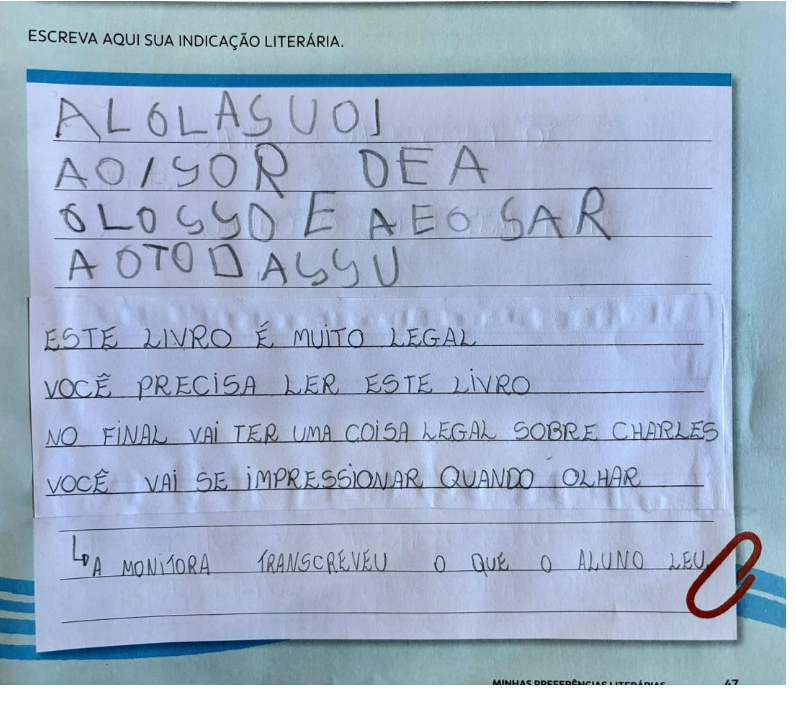 ESCREVA AQUI SUA INDICAÇÃO LITERÁRIA.
ALOLASUOI
AOISOR DEA
OLOSSO E AEO SAR
A OTO DASSU
ESTE LIVRO É MUITO LEGAL
VOCÊ PRECISA LER ESTE LIVRO
NO FINAL VAI TER UMA COISA LEGAL SOBRE CHARLES
VOCÊ VAI SE IMPRESSIONAR QUANDO OLHAR
A MONITORA TRANSCREVEU O QUE O ALUNO LEU
MINHAS PREFERÊNCIAS LITERÁRIAS 47